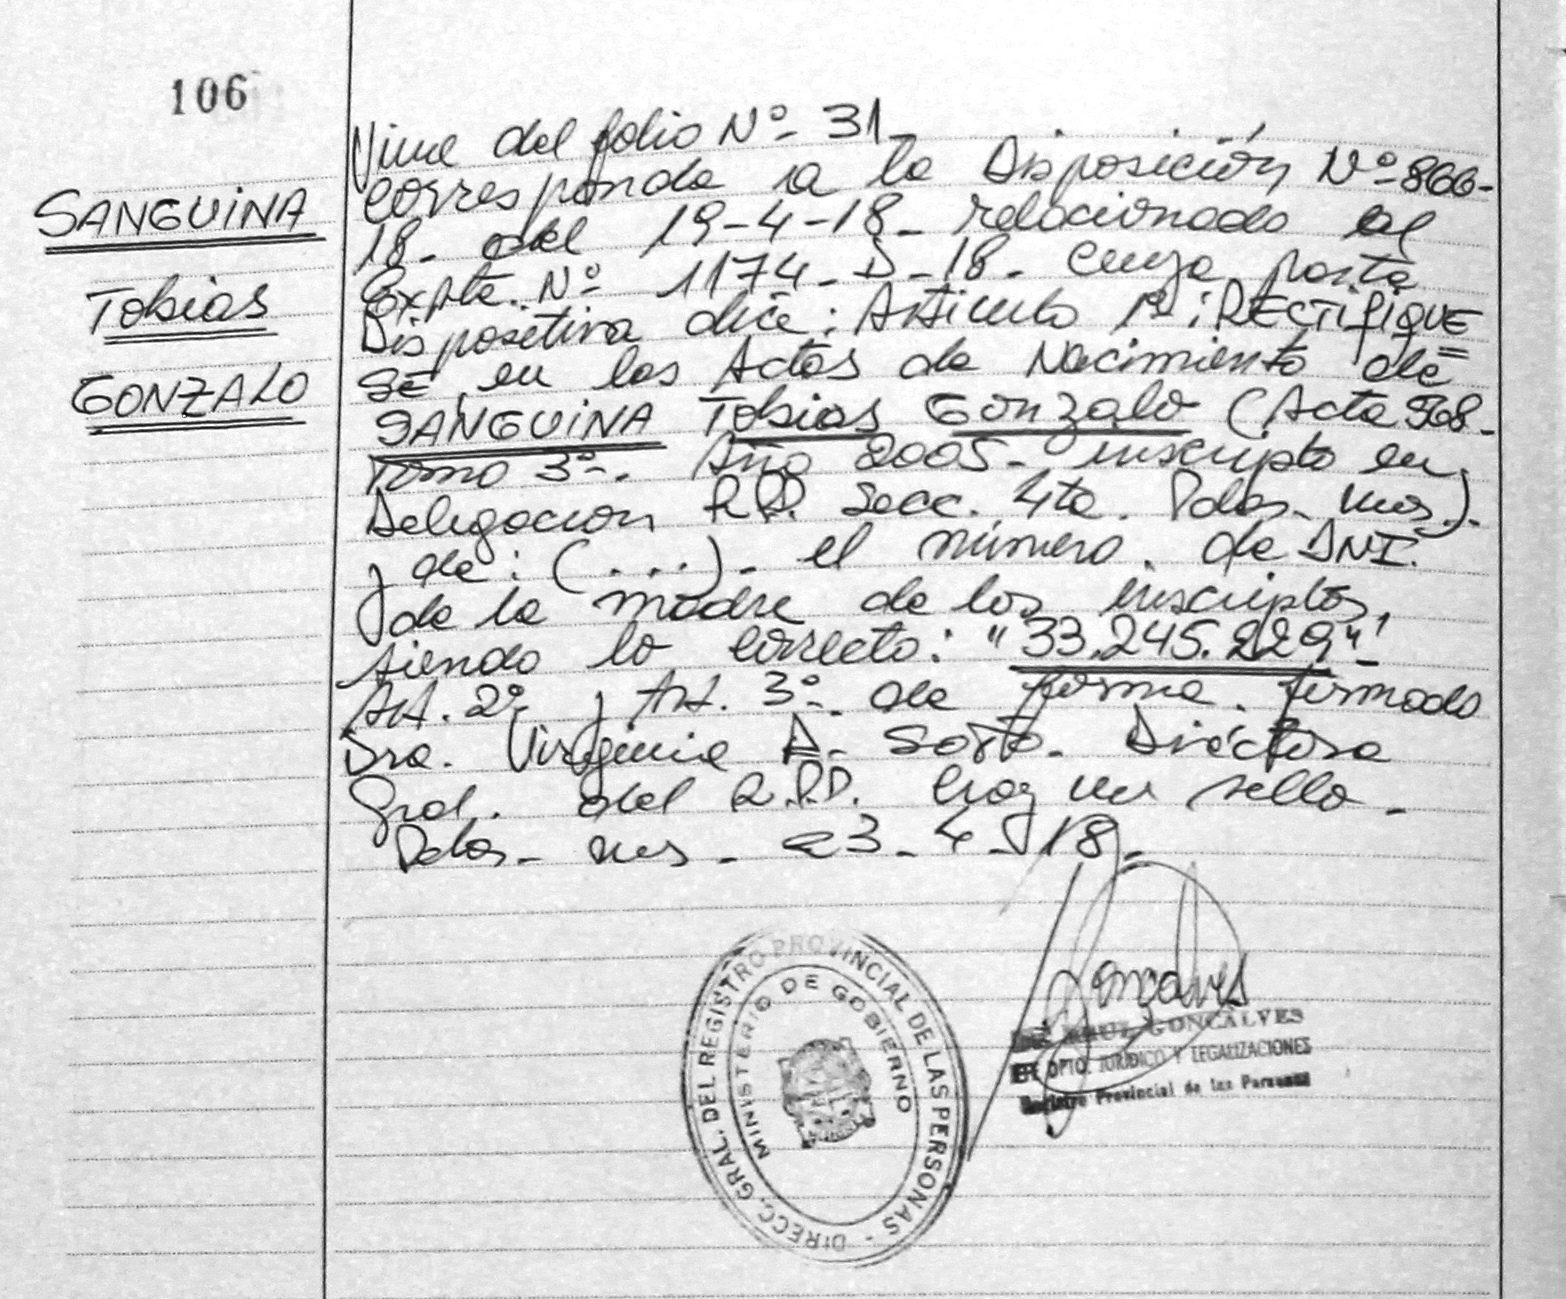 106
SANGUINA
Tobias
GONZALO
Viene del folio Nº- 31-
corresponde a la Disposición Nº-866-
18- del 19-4-18- relacionado al
Expte. Nº 1174-D-18- cuya parte
Dispositiva dice: Articulo 1º: RECTIFIQUE=
se, en las Actas de Nacimiento de
SANGUINA Tobias Gonzalo (Acta 568-
Tomo 3º-. Año 2005- inscripto en
Delegacion R.P.P. Secc. 4ta. Pdas- mns.).
y de: (...)- el número de DNI.
de la madre de los inscriptos,
siendo lo correcto: "33.245.229"-
Art. 2º y Art. 3º- de forma. firmado
Dra. Virginia A. Sosto- Directora
Gral. del R.P.P. hay un sello-
Pdas- mns- 23-4-18-
DIRECC. GRAL. DEL REGISTRO PROVINCIAL DE LAS PERSONAS -
MINISTERIO DE GOBIERNO
Goncalves
RAUL GONCALVES
DPTO. JURIDICO Y LEGALIZACIONES
Registro Provincial de las Personas